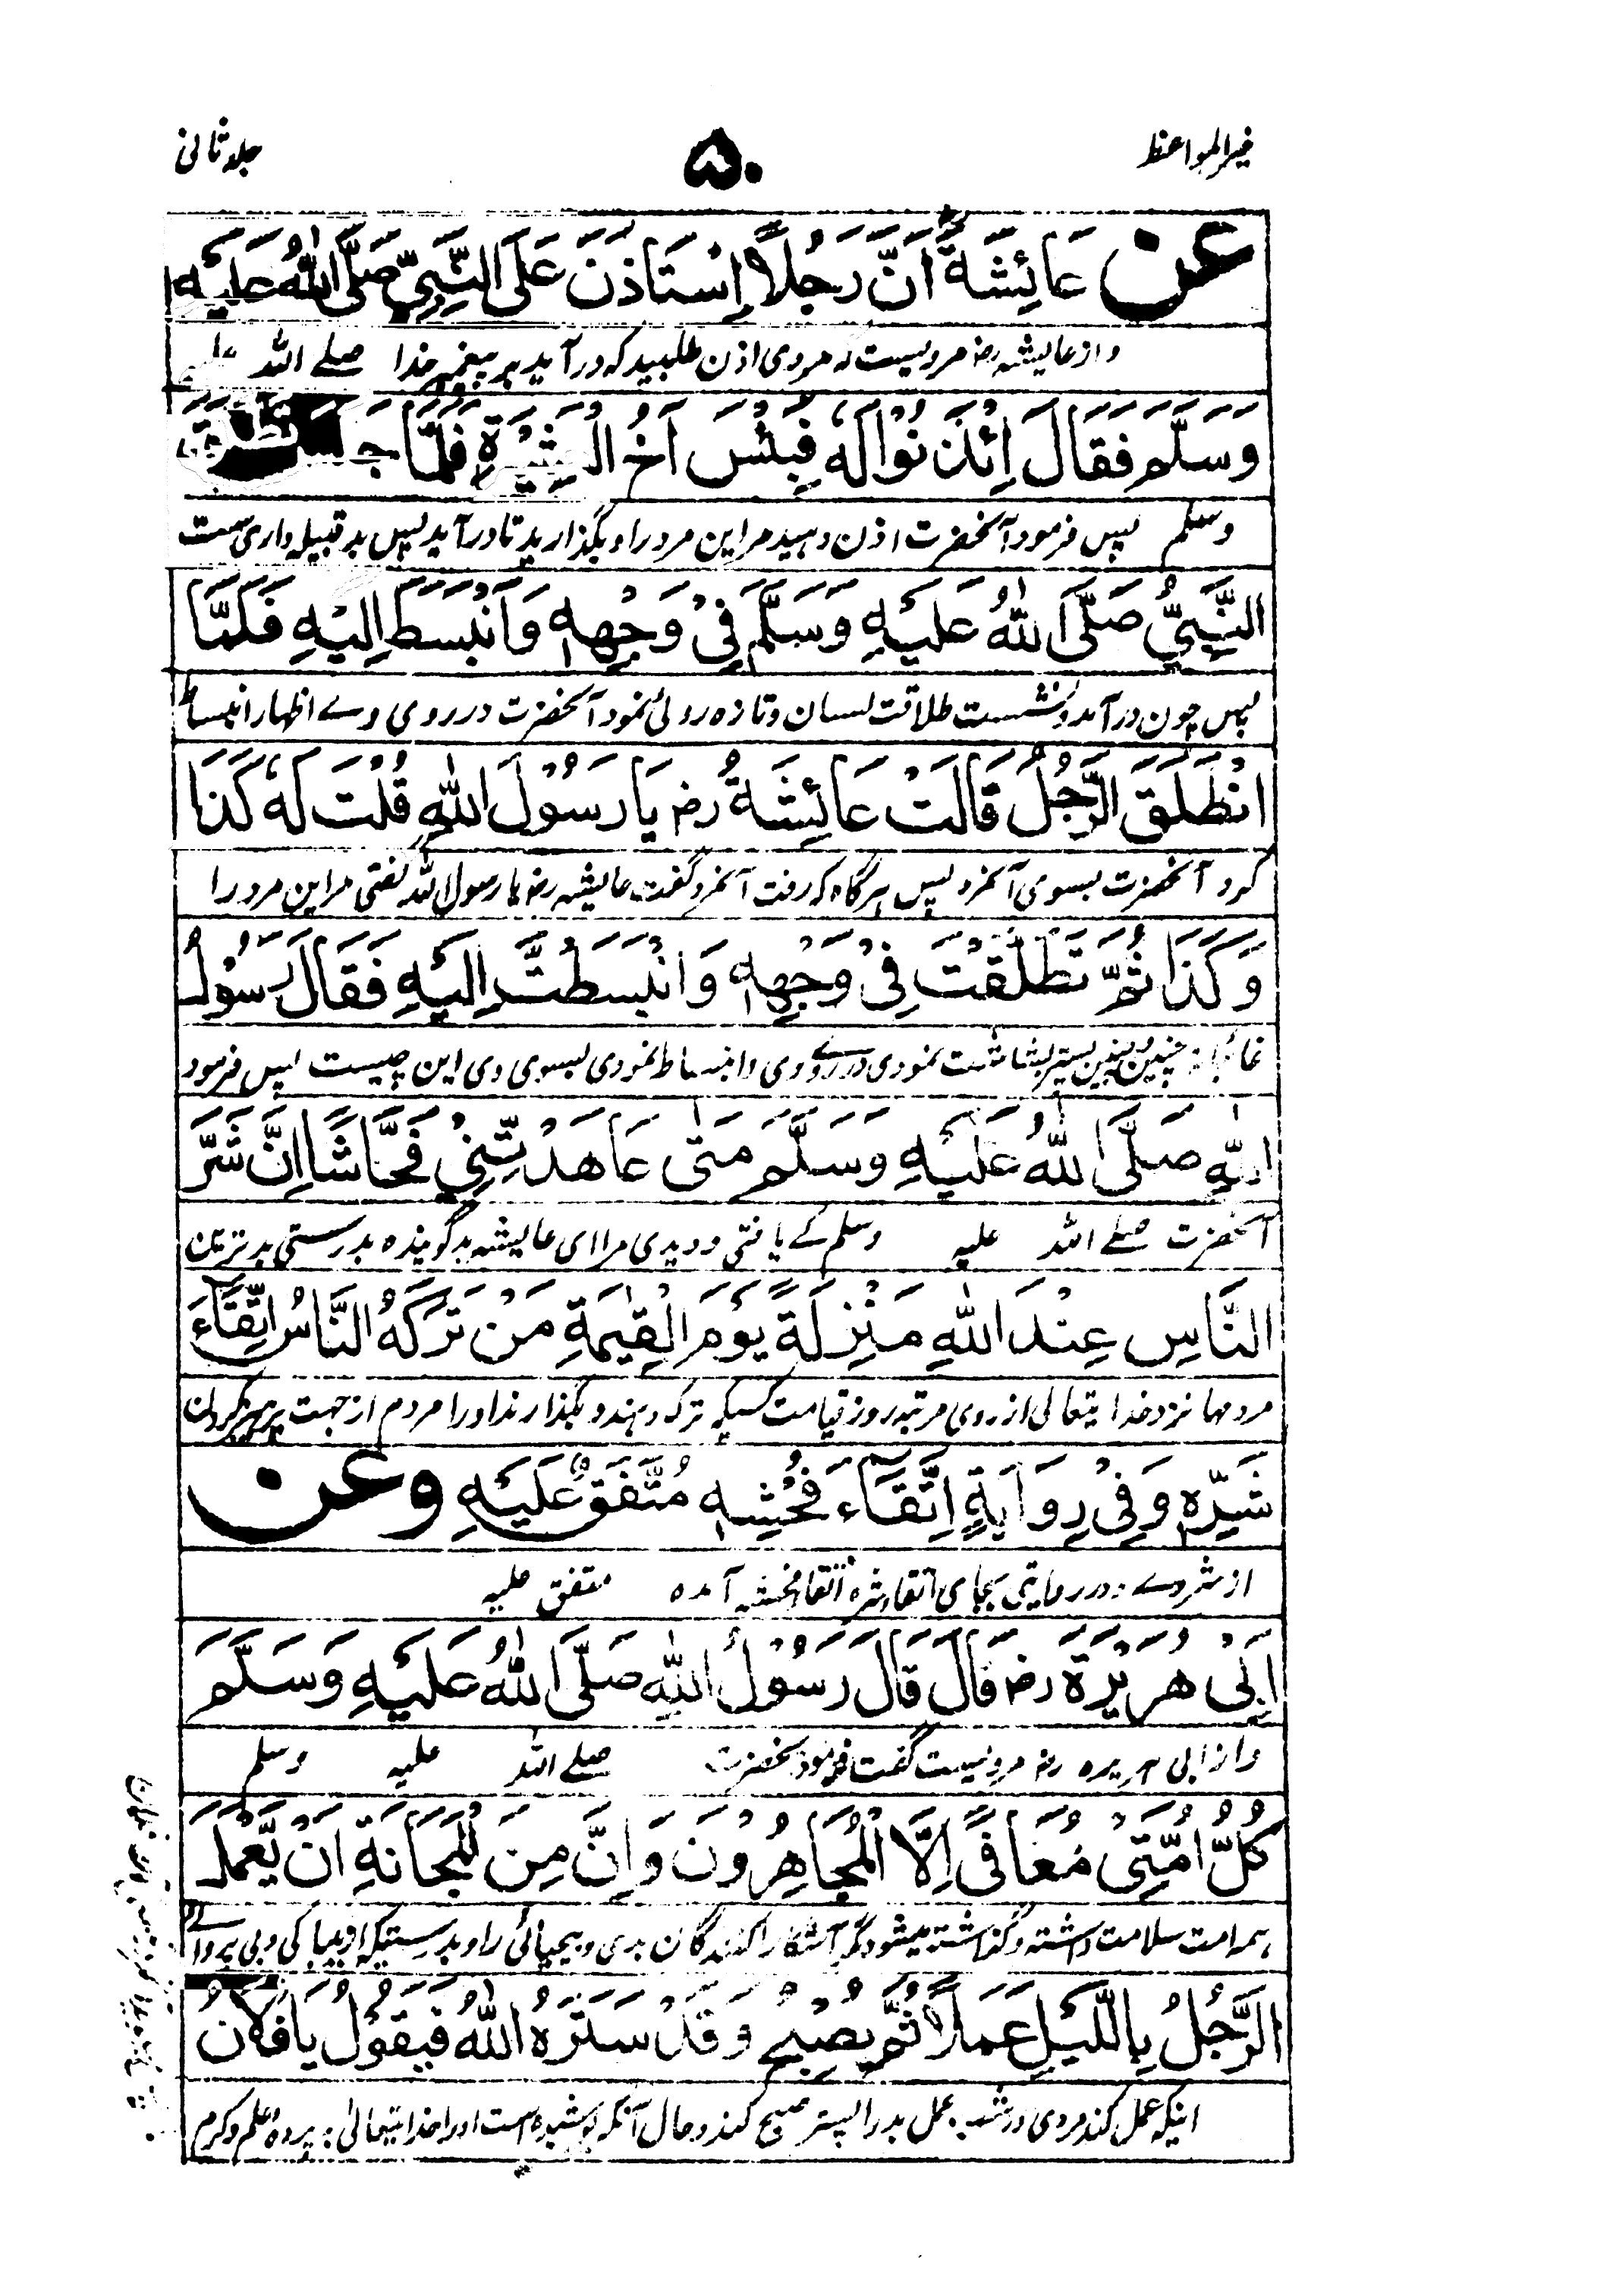 خیرالمواعظ
۵۰
جلد ثانی
عن عَائِشَةَ اَنَّ رَجُلًا اِسْتَاذَنَ عَلَى النَّبِيِّ صَلَّى اللّٰهُ عَلَيْهِ
و از عایشه رضہ مرویست که مردی اذن طلبید که در آید بر پیغمبر خدا صلے اللہ
وَسَلَّمَ فَقَالَ اِئْذَنُوْا لَهٗ فَبِئْسَ اَخُ الْعَشِيْرَةِ فَلَمَّا
وسلم پس فرمود آنحضرت اذن دہید مر این مرد را و بگذارید تا در آید پس بد قبیله داری ست
النَّبِيُّ صَلَّى اللّٰهُ عَلَيْهِ وَسَلَّمَ فِيْ وَجْهِهٖ وَانْبَسَطَ اِلَيْهِ فَلَمَّا
پس چون در آمد و نشست طلاقت لسان و تازه روئی نمود آنحضرت در روی وے اظهار انبساط
انْطَلَقَ الرَّجُلُ قَالَتْ عَائِشَةُ رضہ يَا رَسُوْلَ اللّٰهِ قُلْتَ لَهٗ كَذَا
کرد آنحضرت بسوی آنمرد پس ہرگاہ که رفت آنمرد گفت عایشه رضہ یا رسول اللہ گفتی مر این مرد را
وَكَذَا ثُمَّ تَطَلَّقْتَ فِيْ وَجْهِهٖ وَانْبَسَطْتَّ اِلَيْهِ فَقَالَ رَسُوْلُ
چنین چنین پستر بشاشت نمودی در روی وی و انبساط نمودی بسوی وی این چیست پس فرمود
اللّٰهِ صَلَّى اللّٰهُ عَلَيْهِ وَسَلَّمَ مَتٰى عَاهَدْتِّنِيْ فَحَّاشًا اِنَّ شَرَّ
آنحضرت صلے اللہ علیہ وسلم کے یافتی و دیدی مرا ای عایشه بدگوینده بدرستی بدترین
النَّاسِ عِنْدَ اللّٰهِ مَنْزِلَةً يَوْمَ الْقِيٰمَةِ مَنْ تَرَكَهُ النَّاسُ اتِّقَاءَ
مردمها نزد خدایتعالی از روی مرتبه روز قیامت کسیکه ترک دہند و بگذارند او را مردم از جهت پرہیز کردن
شَرِّهٖ وَفِيْ رِوَايَةٍ اِتِّقَاءَ فُحْشِهٖ مُتَّفَقٌ عَلَيْهِ وعن
از شر وے و در روایتی بجای اتقاء شره اتقاء فحشه آمده متفق علیه
اَبِيْ هُرَيْرَةَ رضہ قَالَ قَالَ رَسُوْلُ اللّٰهِ صَلَّى اللّٰهُ عَلَيْهِ وَسَلَّمَ
و از ابی ہریره رضہ مرویست گفت فرمود آنحضرت صلے اللہ علیہ وسلم
كُلُّ اُمَّتِيْ مُعَافًى اِلَّا الْمُجَاهِرُوْنَ وَاِنَّ مِنَ الْمَجَانَةِ اَنْ يَّعْمَلَ
ہمه امت سلامت داشته و گذاشته میشود مگر آشکارا کنندگان بدی و بیحیائی را و بدرستیکه از بیباکی و بی پروائی
الرَّجُلُ بِاللَّيْلِ عَمَلًا ثُمَّ يُصْبِحُ وَقَدْ سَتَرَهُ اللّٰهُ فَيَقُوْلُ يَا فُلَانُ
اینکه عمل کند مردی در شب عمل بد را پستر صبح کند و حال آنکه پوشیده است او را خدایتعالی به پردۀ علم و کرم